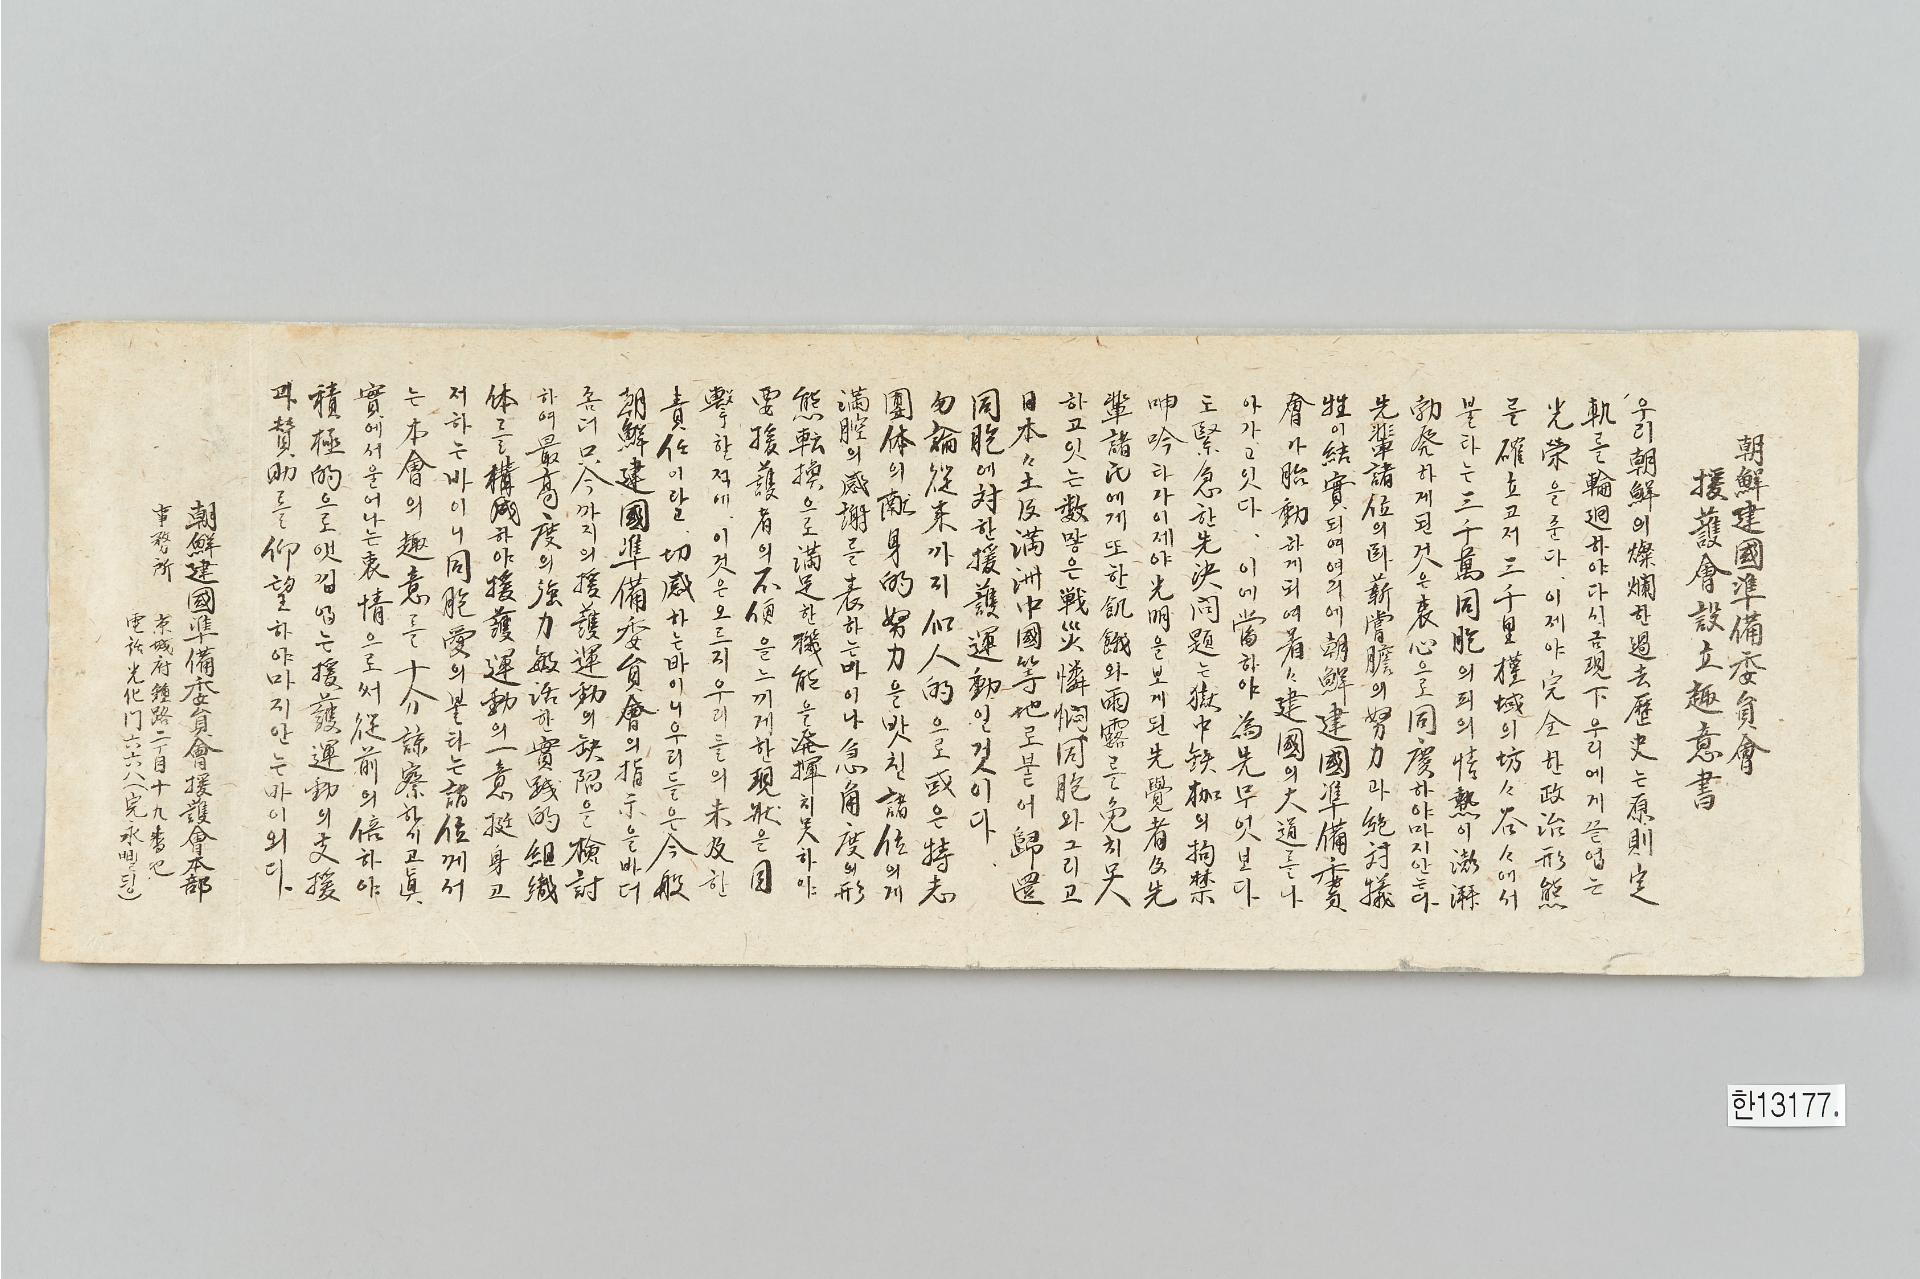 朝鮮建國準備委員會
援護會設立趣意書
우리朝鮮의燦爛한過去歷史는原則定
軌를輪廻하야다시금現下우리에게끝업는
光榮을준다. 이제야完全한政治形態
를確立고저三千里槿域의坊々谷々에서
불타는三千萬同胞의피의情熱이澎湃
勃発하게된것은衷心으로同慶하야마지안는다.
先輩諸位의臥薪嘗膽의努力과絶討犧
牲이結實되여여긔에朝鮮建國準備委員
會가胎動하게되여着々建國의大道를나
아가고잇다. 이에當하야為先무엇보다
도緊急한先決问題는獄中鉄枷의拘禁
呻吟타가이제야光明을보게된先覺者及先
輩諸氏에게또한飢餓와雨露를免치못
하고잇는数많은戦災憐憫同胞와그리고
日本々土及満洲中國等地로붙어歸還
同胞에対한援護運動일것이다.
勿論從来까지個人的으로或은特志
團体의献身的努力을밧친諸位의게
満腔의感謝를表하는바이나急角度의形
態転換으로滿足한機能을発揮치못하야
要援護者의不便을느끼게한現狀을目
擊할적에. 이것은오르지우리들의未及한
責任이라고切感하는바이니우리들은今般
朝鮮建國準備委員會의指示을바더
좀더只今까지의援護運動의缺陷을檢討
하여最高度의強力敏活하實践的組織
体를構成하야援護運動의一意挺身고
저하는바이니同胞愛의불타는諸位께서
는本會의趣意를十分諒察하시고眞
實에서울어나는衷情으로써從前의倍하야
積極的으로앳낌업는援護運動의支援
과賛助를仰望하야마지안는바이외다.
朝鮮建國準備委員會援護會本部
事務所 京城府鍾路二丁目十九番地
電話光化门六六八(完永밀딍)
한13177.